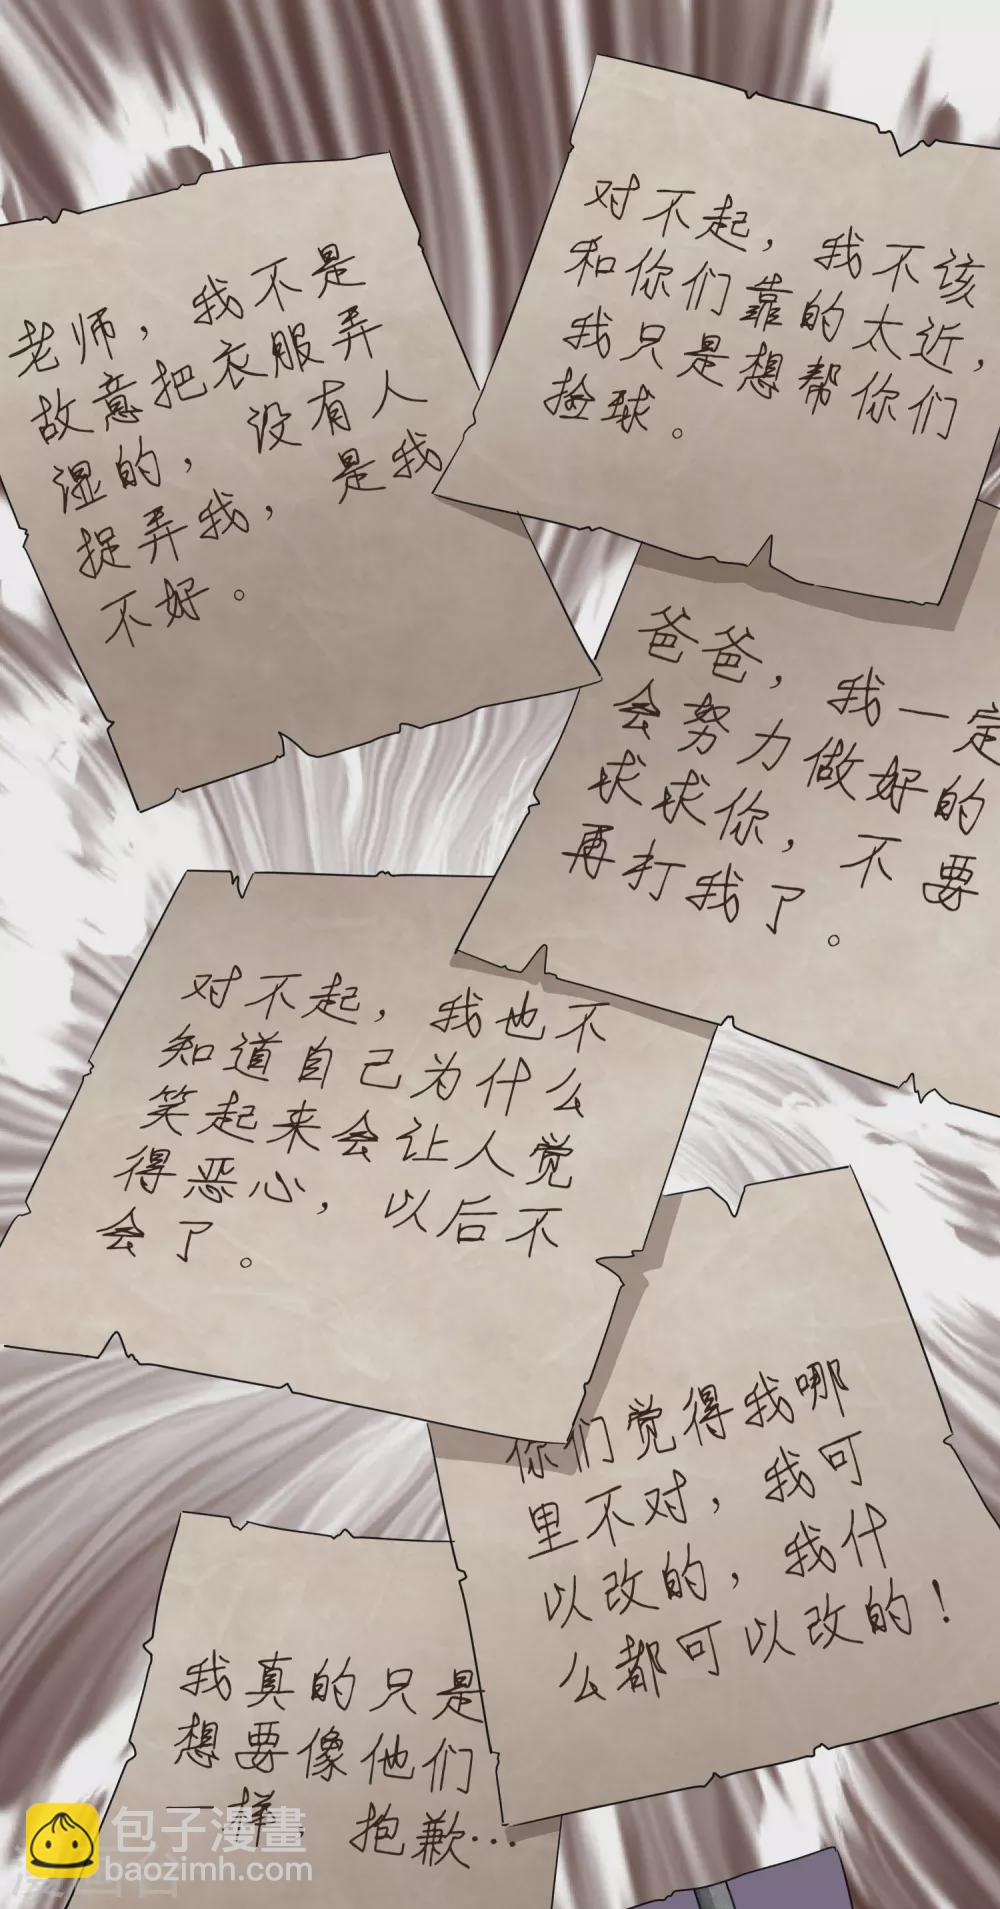 对不起，我不该
和你们靠的太近，
我只是想帮你们
捡球。
老师，我不是
故意把衣服弄
湿的，没有人
捉弄我，是我
不好。
爸爸，我一定
会努力做好的
求求你，不要
再打我了。
对不起，我也不
知道自己为什么
笑起来会让人觉
得恶心，以后不
会了。
你们觉得我哪
里不对，我可
以改的，我什
么都可以改的！
我真的只是
想要像他们
一样，抱歉…
包子漫畫
baozimh.com